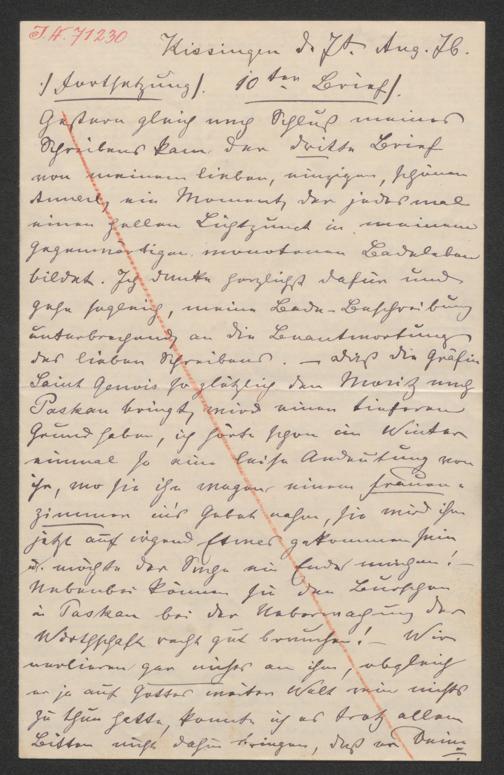 I.N. 71230
Kissingen d. 7t. Aug. 76.
/: Fortsetzung /. 10ter Brief /.
Gestern gleich nach Schluß meines
Schreibens kam der dritte Brief
von meinem lieben, einzigen, schönen
Annerl, ein Moment, der jedesmal
einen hellen Lichtpunct in meinem
gegenwärtigen monotonen Badeleben
bildet. Ich danke herzlichst dafür und
gehe sogleich, meine Bade-Beschreibung
unterbrechend, an die Beantwortung
des lieben Schreibens. – Daß die Gräfin
Saint Genois so plötzlich den Moritz nach
Paskau bringt, wird einen tieferen
Grund haben, ich hörte schon im Winter
einmal so eine leise Andeutung von
ihr, wo sie ihn wegen einem Frauen-
zimmer in's Gebet nahm, sie wird ihm
jetzt auf irgend Etwas gekommen sein
u. möchte der Sache ein Ende machen! –
Nebenbei können sie den Burschen
in Paskau bei der Ueberwachung der
Wirthschaft recht gut brauchen! – Wir
verlieren gar nichts an ihm, obgleich
er ja auf Gottes weiter Welt rein nichts
zu thun hatte, konnte ich es trotz allem
Bitten nicht dahin bringen, daß er Deine